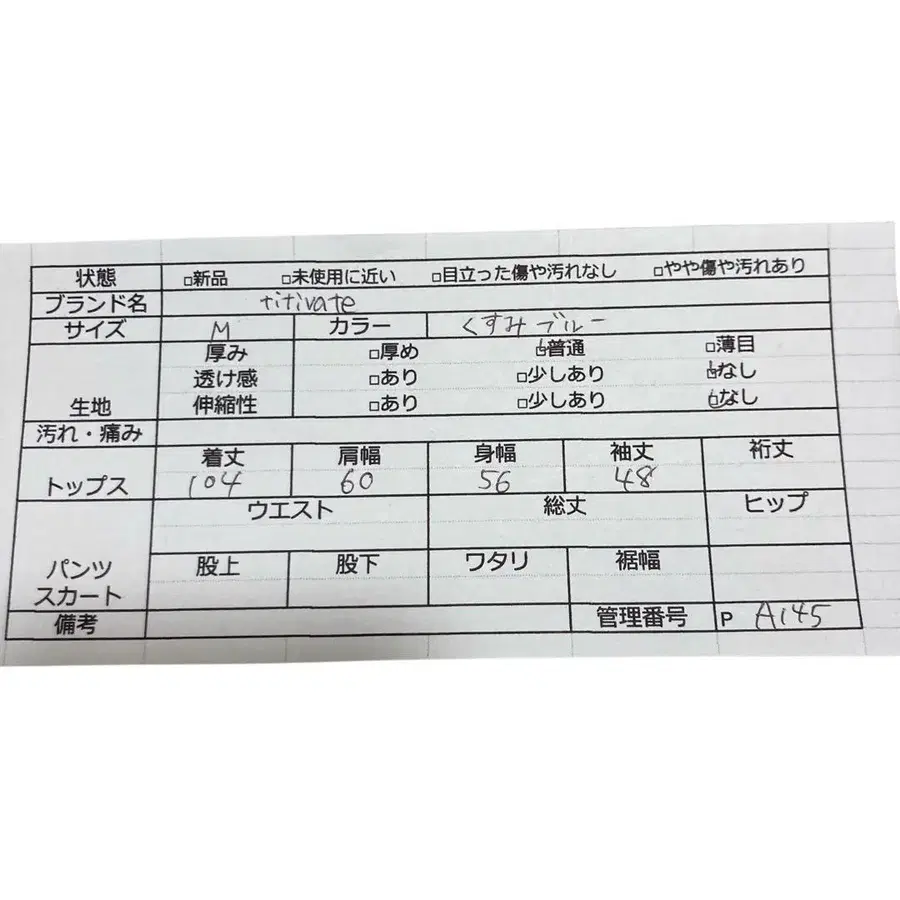 状態 □新品 □未使用に近い □目立った傷や汚れなし □やや傷や汚れあり
ブランド名 titivate
サイズ M カラー くすみブルー
厚み □厚め □普通 □薄目
透け感 □あり □少しあり □なし
生地 伸縮性 □あり □少しあり □なし
汚れ・痛み
着丈 肩幅 身幅 袖丈 裄丈
トップス 104 60 56 48
ウエスト 総丈 ヒップ
股上 股下 ワタリ 裾幅
パンツ
スカート
備考 管理番号 P A145